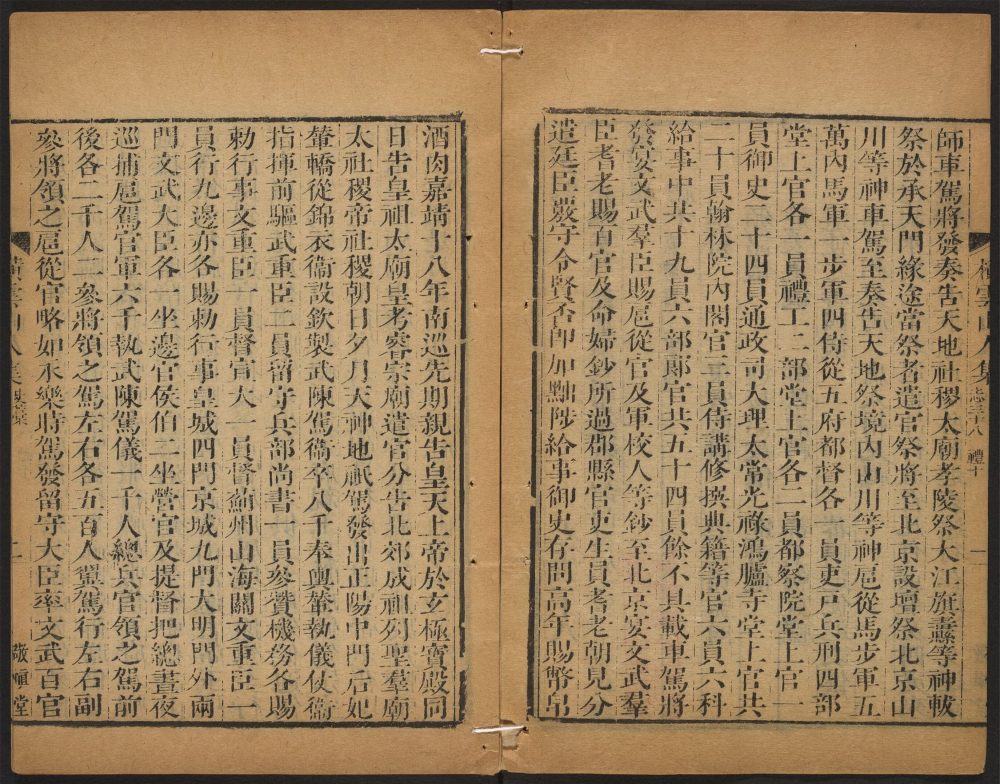 師車駕將發奏告天地社稷太廟孝陵祭大江旗纛等神軷
祭於承天門緣途當祭者遣官祭將至北京設壇祭北京山
川等神車駕至奏告天地祭境內山川等神扈從馬步軍五
萬內馬軍一步軍四侍從五府都督各一員吏戶兵刑四部
堂上官各一員禮工二部堂上官各二員都察院堂上官一
員御史二十四員通政司大理太常光祿鴻臚寺堂上官共
二十員翰林院內閣官三員侍講修撰典籍等官六員六科
給事中共十九員六部郎官共五十四員餘不具載車駕將
發宴文武羣臣賜扈從官及軍校人等鈔至北京宴文武羣
臣耆老賜百官及命婦鈔所過郡縣官吏生員耆老朝見分
遣廷臣覈守令賢否即加黜陟給事御史存問高年賜幣帛
橫雲山人集 志三十八 禮十 一
酒肉嘉靖十八年南巡先期親告皇天上帝於玄極寶殿同
日告皇祖太廟皇考睿宗廟遣官分告北郊成祖列聖羣廟
太社稷帝社稷朝日夕月天神地祇駕發出正陽中門后妃
輦轎從錦衣衞設欽製武陳駕衞卒八千奉輿輦執儀仗衞
指揮前驅武重臣二員留守兵部尚書一員參贊機務各賜
勅行事文重臣一員督宣大一員督薊州山海關文重臣一
員行九邊亦各賜勅行事皇城四門京城九門大明門外兩
門文武大臣各一坐邊官侯伯二坐營官及提督把總晝夜
巡捕扈駕官軍六千執武陳駕儀一千人總兵官領之駕前
後各二千人二參將領之駕左右各五百人翼駕行左右副
參將領之扈從官略如永樂時駕發留守大臣率文武百官
橫雲山人集 二 敬慎堂